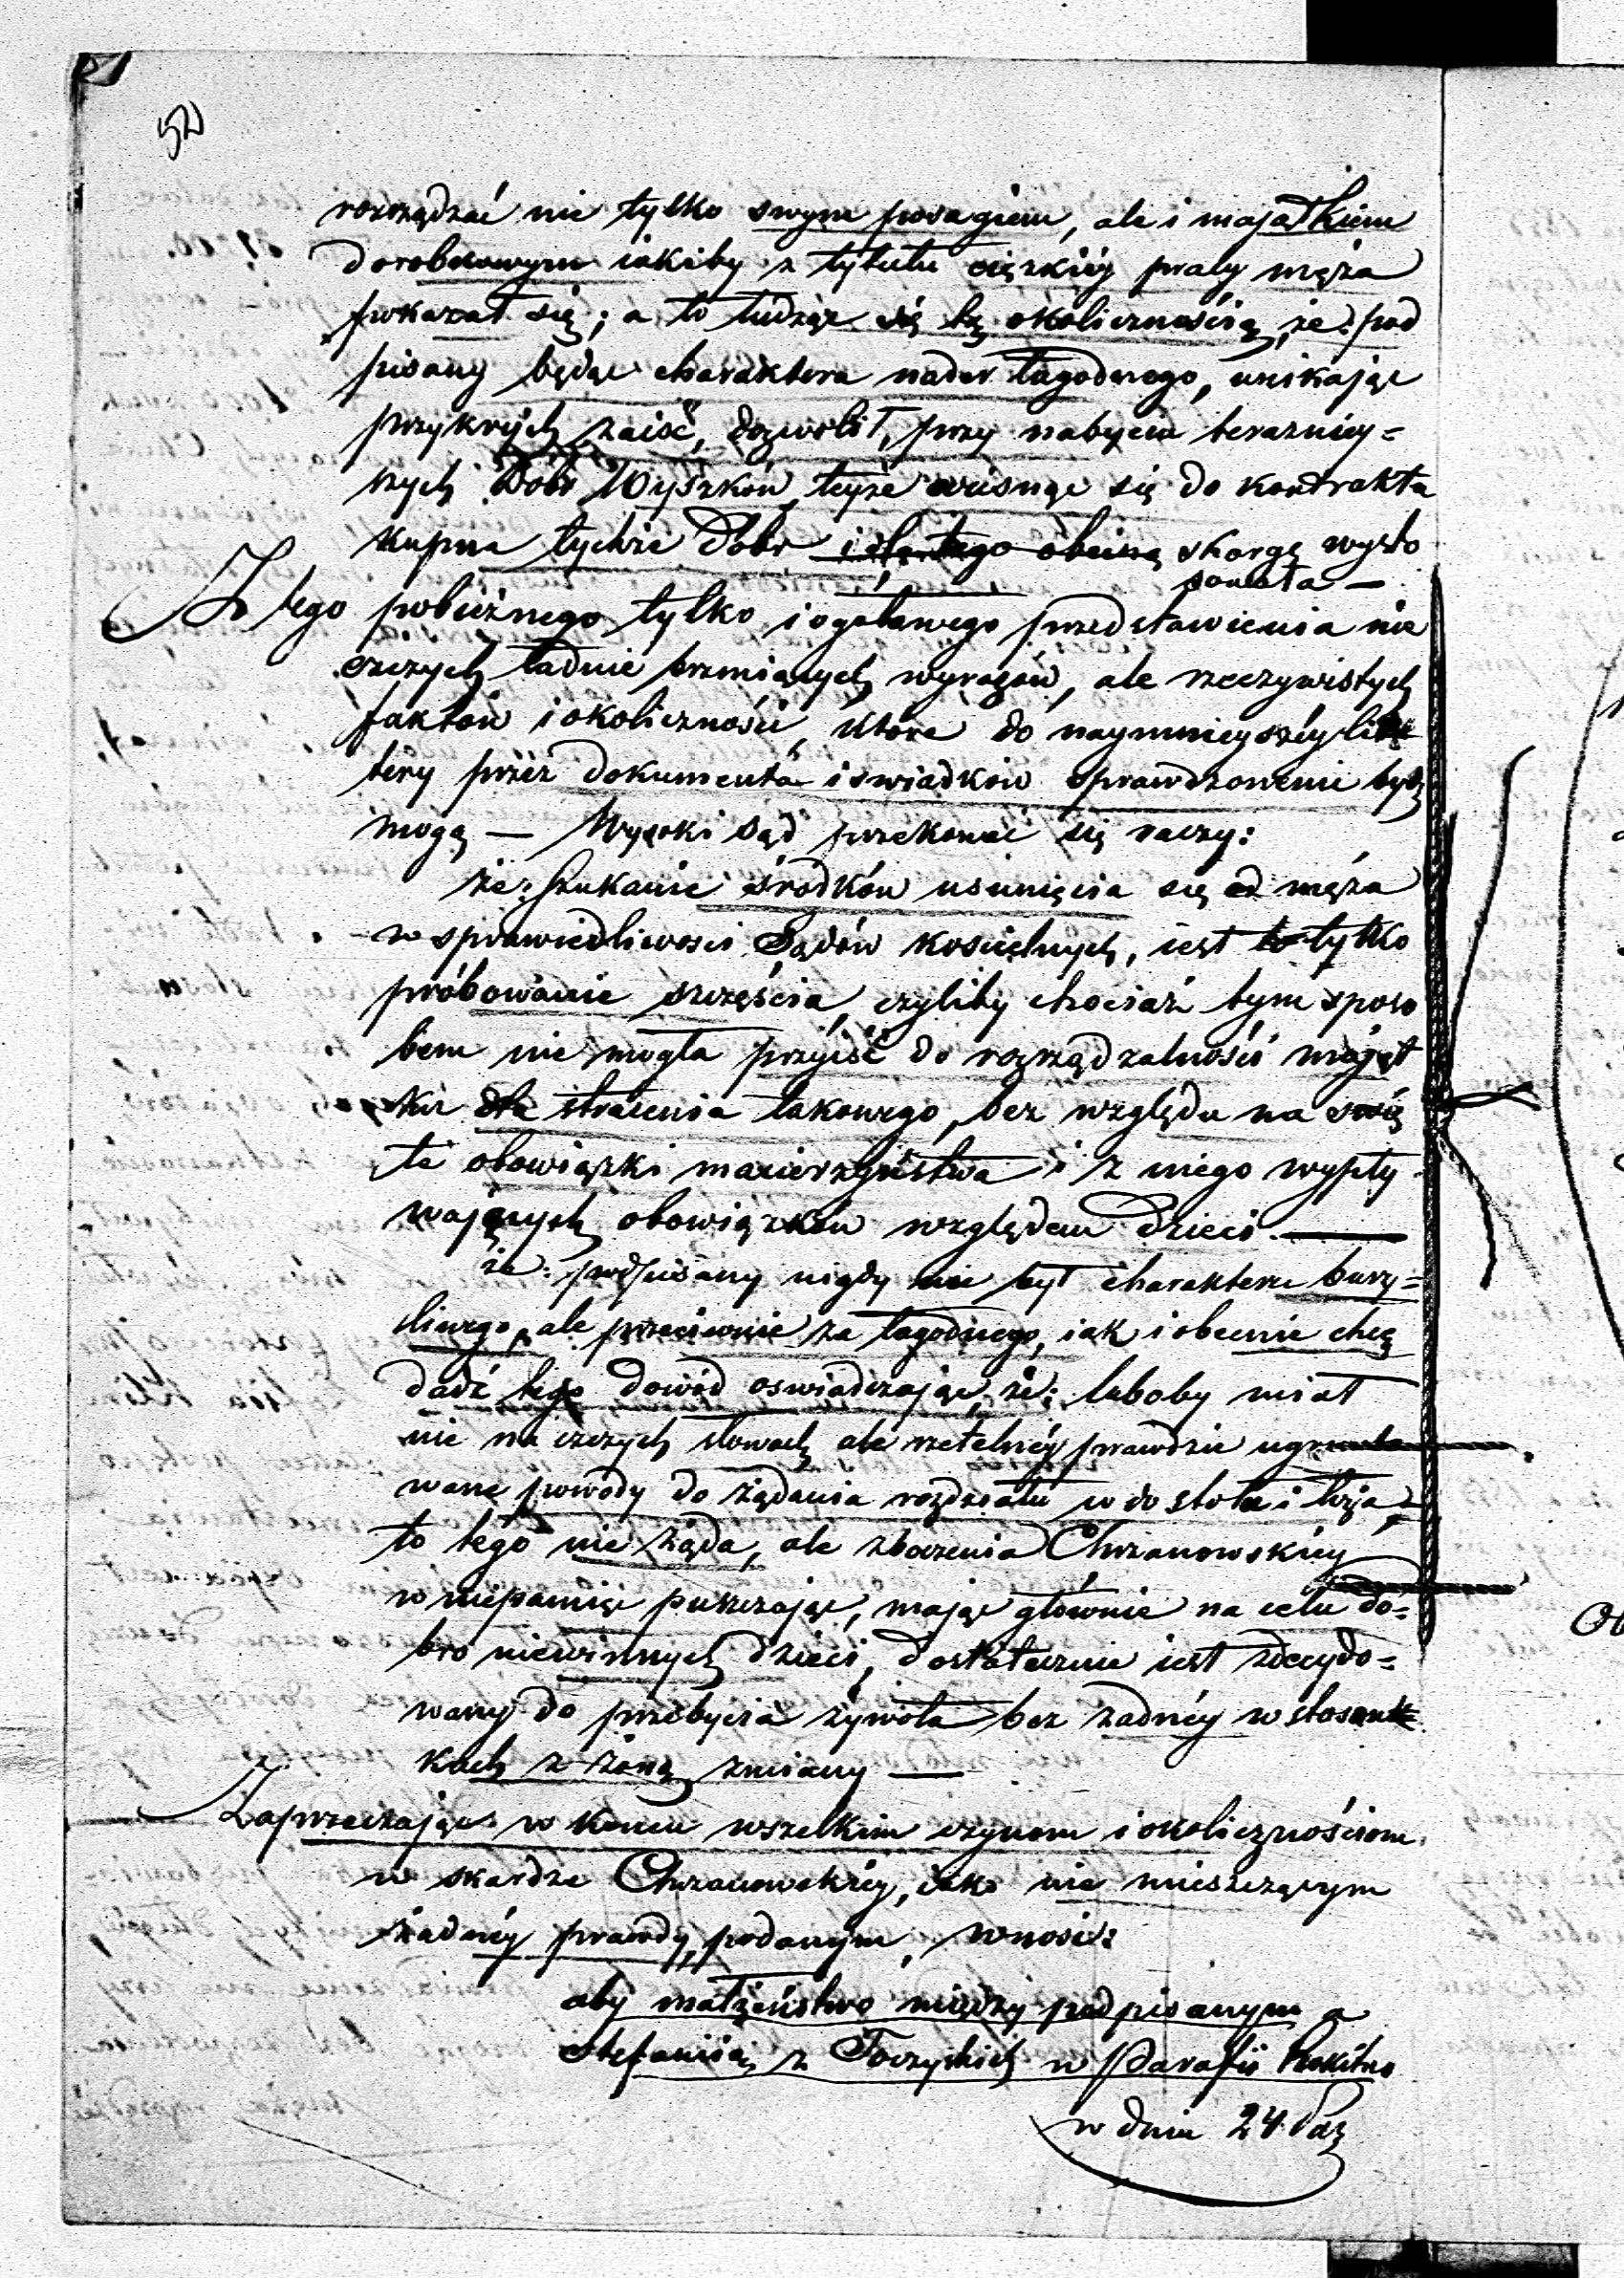 52
rozrządzać nie tylko swym posagiem, ale i majątkiem
dorobkowym iakiby z tytułu ciężkiéy pracy męża
pokazał się; a to łudząc się tą okolicznością, że: pod
pisany będąc charakteru nader łagodnego, unikając
przykrych zaiść, dozwolił, przy nabyciu terazniey=
szych Dóbr Wyszków, teyże wcisnąć się do kontraktu
kupna tychże Dobr i dla tego obecną skargę wysto
sowała —
Z tego pobieżnego tylko i ogółowego przedstawienia nie
czczych ładnie brzmiących wyrazów, ale rzeczywistych
faktów i okoliczności, które do naymnieyszéy lit
tery przez dokumenta i swiadków sprawdzonemi bydź
mogą — Wysoki Sąd przekonać się raczy:
że: szukanie środków usunięcia się od męża
w sprawiedliwosci Sądów koscielnych, iest to tylko
próbowanie szczęścia, czyliby chociaż tym sposo
bem nie mogła przyiść do rozrządzalności mająt
ku dla stracenia takowego, bez względu na świę
te obowiązki macierzyństwa i z niego wypły
wających obowiązków względem dzieci. —
że: podpisany nigdy nie był charakteru burz=
liwego, ale przeciwnie za łagodnego, iak i obecnie chcą
dadź tego dowód oswiadczając, że: luboby miał
nie na czczych słowach ale rzetelnéy prawdzie ugrunto
wane powody do żądania rozdziału co do stołu i łoża,
to tego nie żąda, ale zboczenia Chrzanowskiéy
w niepamięć puszczając, mając głównie na celu do=
bro niewinnych dzieci, dostatecznie iest zdecydo=
wany do przebycia żywota bez żadnéy w stosun
kach z żoną zmiany —
Zaprzeczając w końcu wszelkim czynom i okolicznościom
w skardze Chrzanowskiéy, iako nie mieszczącym
żadnéy prawdy, podanym, wnosi:
aby małżeństwo między podpisanym a
Stefaniią z Toczyskich w Parafii Rokitno
w dniu 24 Paź